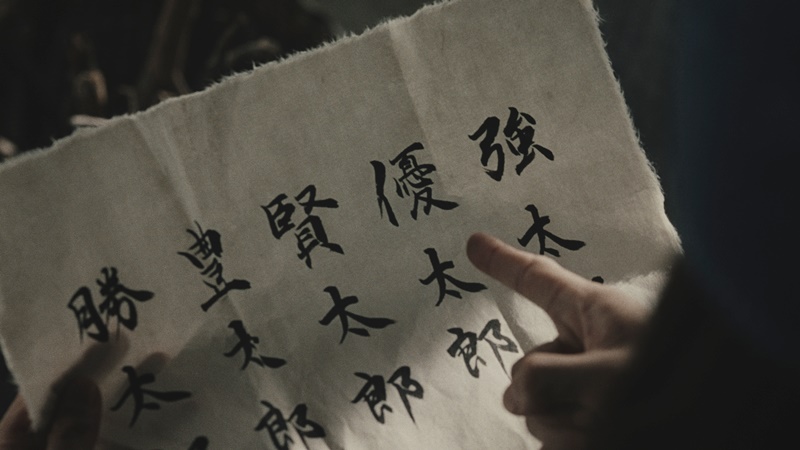 強太
優太郎
賢太郎
豊太郎
勝太